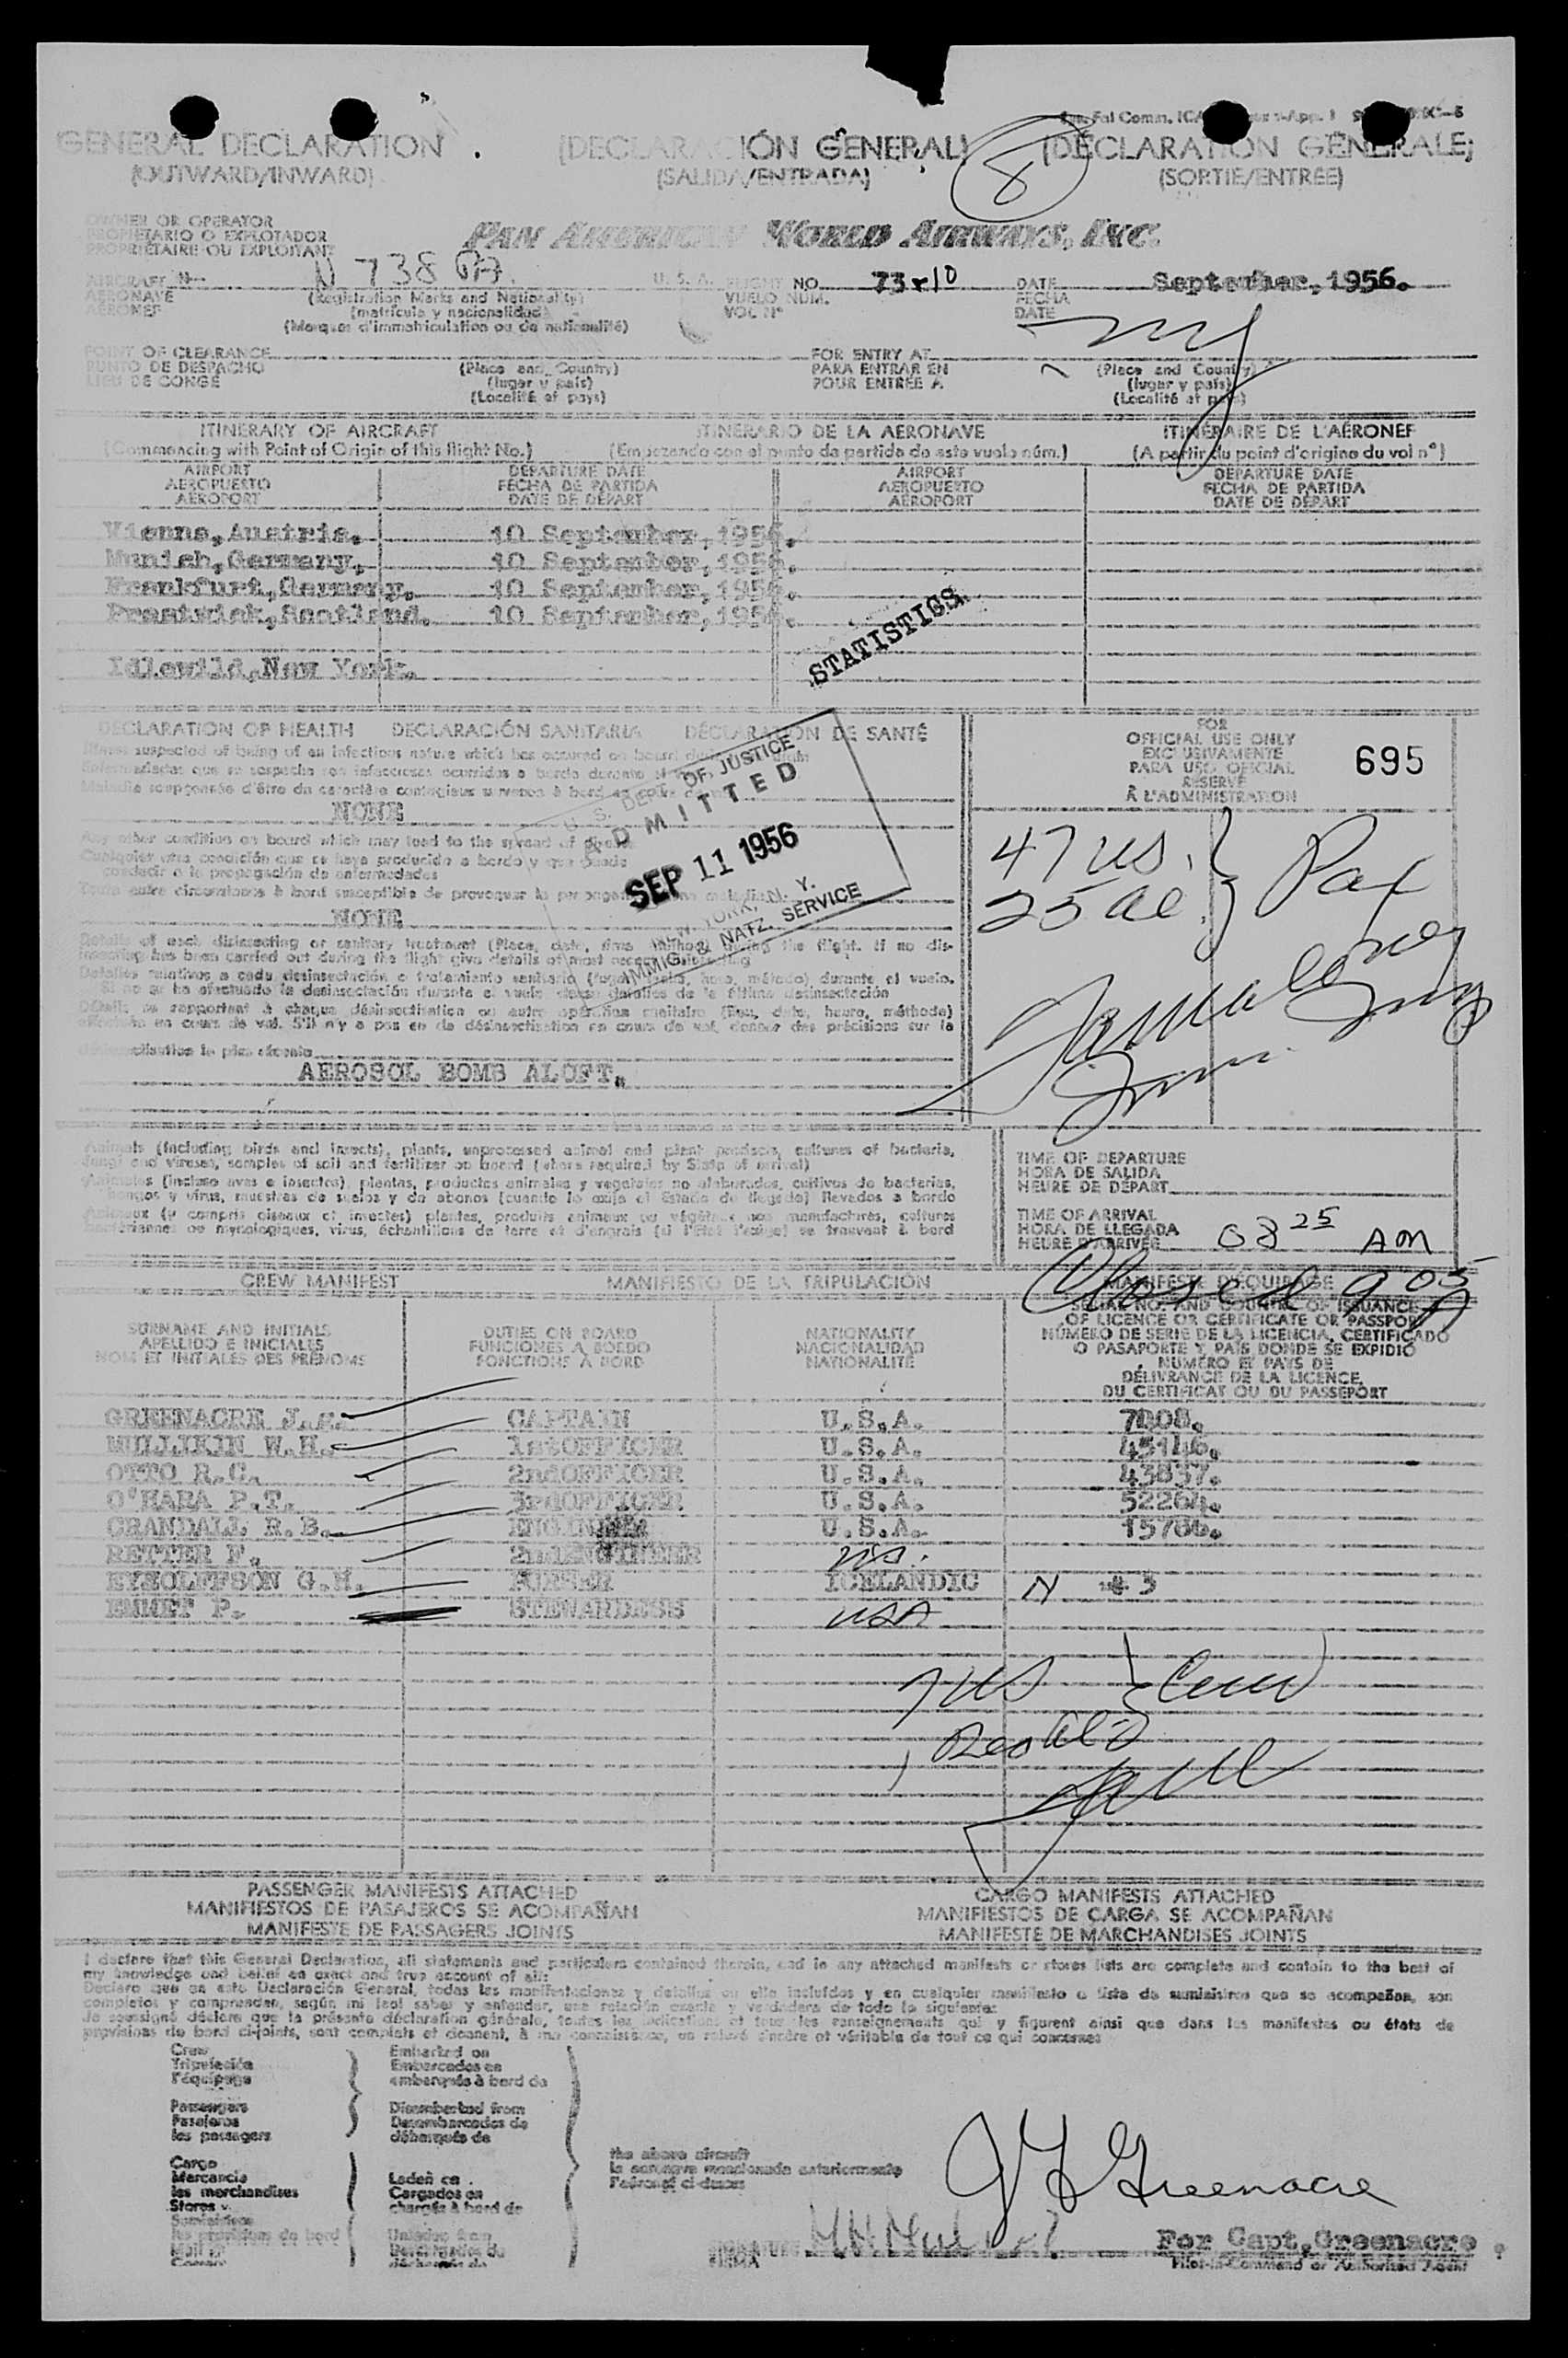 GENERAL DECLARATION (DECLARACIÓN GENERAL) (DECLARATION GÉNÉRALE)
(OUTWARD/INWARD) (SALIDA/ENTRADA) (SORTIE/ENTRÉE)
8
OWNER OR OPERATOR
PROPIETARIO O EXPLOTADOR
PROPRIÉTAIRE OU EXPLOITANT
PAN AMERICAN WORLD AIRWAYS, INC.
AIRCRAFT N- N 738 PA. U. S. A. FLIGHT NO. 73x10 DATE September, 1956.
AERONAVE (Registration Marks and Nationality) VUELO NUM. FECHA
AERONEF (matrícula y nacionalidad) VOL Nº DATE
(Marques d'immatriculation ou de nationalité)
POINT OF CLEARANCE FOR ENTRY AT NY
PUNTO DE DESPACHO (Place and Country) PARA ENTRAR EN (Place and Country)
LIEU DE CONGÉ (lugar y país) POUR ENTRÉE A (lugar y país)
(Localité et pays) (Localité et pays)
ITINERARY OF AIRCRAFT ITINERARIO DE LA AERONAVE ITINÉRAIRE DE L'AÉRONEF
(Commencing with Point of Origin of this flight No.) (Empezando con el punto de partida de este vuelo núm.) (A partir du point d'origine du vol nº)
AIRPORT DEPARTURE DATE AIRPORT DEPARTURE DATE
AEROPUERTO FECHA DE PARTIDA AEROPUERTO FECHA DE PARTIDA
AÉROPORT DATE DE DÉPART AÉROPORT DATE DE DÉPART
Vienna, Austria. 10 September, 1956.
Munich, Germany. 10 September, 1956.
Frankfurt, Germany. 10 September, 1956.
Prestwick, Scotland. 10 September, 1956.
STATISTICS
Idlewild, New York.
DECLARATION OF HEALTH DECLARACIÓN SANITARIA DÉCLARATION DE SANTÉ
Illness suspected of being of an infectious nature which has occured on board during the flight
NONE
Any other condition on board which may lead to the spread of disease
Cualquier otra condición que se haya producido a bordo y que pueda
conducir a la propagación de enfermedades
NONE
U. S. DEPT. OF JUSTICE
ADMITTED
SEP 11 1956
NEW YORK, N. Y.
IMMIG. & NATZ. SERVICE
Details of each disinsecting or sanitary treatment (Place, date, time, method) during the flight. If no dis-
insecting has been carried out during the flight give details of most recent disinsecting
Detalles relativos a cada desinsectación o tratamiento sanitario (lugar, fecha, hora, método) durante el vuelo.
Si no se ha efectuado la desinsectación durante el vuelo dense detalles de la última desinsectación
AEROSOL BOMB ALOFT.
FOR
OFFICIAL USE ONLY
EXCLUSIVAMENTE
PARA USO OFICIAL
RÉSERVÉ
À L'ADMINISTRATION
695
47 US. } Pax
25 Al. }
Animals (including birds and insects), plants, unprocessed animal and plant products, cultures of bacteria,
fungi and viruses, samples of soil and fertilizer on board (where required by State of arrival)
Animales (incluso aves e insectos), plantas, productos animales y vegetales no elaborados, cultivos de bacterias,
hongos y virus, muestras de suelos y de abonos (cuando lo exija el Estado de llegada) llevados a bordo
Animaux (y compris oiseaux et insectes) plantes, produits animaux ou végétaux non manufacturés, cultures
bactériennes ou mycologiques, virus, échantillons de terre et d'engrais (si l'État l'exige) se trouvant à bord
TIME OF DEPARTURE
HORA DE SALIDA
HEURE DE DÉPART
TIME OF ARRIVAL
HORA DE LLEGADA 08 25 AM
HEURE D'ARRIVÉE
Closed 9 05
CREW MANIFEST MANIFIESTO DE LA TRIPULACIÓN MANIFESTE D'ÉQUIPAGE
SURNAME AND INITIALS
APELLIDO E INICIALES
NOM ET INITIALES DES PRÉNOMS
DUTIES ON BOARD
FUNCIONES A BORDO
FONCTIONS À BORD
NATIONALITY
NACIONALIDAD
NATIONALITÉ
SERIAL NO. AND COUNTRY OF ISSUANCE
OF LICENCE OR CERTIFICATE OR PASSPORT
NÚMERO DE SERIE DE LA LICENCIA, CERTIFICADO
O PASAPORTE Y PAÍS DONDE SE EXPIDIÓ
NUMÉRO ET PAYS DE
DÉLIVRANCE DE LA LICENCE,
DU CERTIFICAT OU DU PASSEPORT
GREENACRE J. CAPTAIN U.S.A. 7008.
MULLIKIN W.H. 1stOFFICER U.S.A. 45146.
OTTO R.C. 2ndOFFICER U.S.A. 43837.
O'HARA P.T. 3rdOFFICER U.S.A. 52264.
CRANDALL R.B. ENGINEER U.S.A. 15786.
RETTER F. 2ndENGINEER US.
EYJOLFFSON G.H. PURSER ICELANDIC N 3
EMMET P. STEWARDESS USA
7 US } Crew
PASSENGER MANIFESTS ATTACHED CARGO MANIFESTS ATTACHED
MANIFIESTOS DE PASAJEROS SE ACOMPAÑAN MANIFIESTOS DE CARGA SE ACOMPAÑAN
MANIFESTE DE PASSAGERS JOINTS MANIFESTE DE MARCHANDISES JOINTS
I declare that this General Declaration, all statements and particulars contained therein, and in any attached manifests or stores lists are complete and contain to the best of
my knowledge and belief an exact and true account of all:
Declaro que en esta Declaración General, todas las manifestaciones y detalles en ella incluídos y en cualquier manifiesto o lista de suministros que se acompañan, son
completos y comprenden, según mi leal saber y entender, una relación exacta y verdadera de todo lo siguiente:
Je soussigné déclare que la présente déclaration générale, toutes les indications et tous les renseignements qui y figurent ainsi que dans les manifestes ou états de
provisions de bord ci-joints, sont complets et donnent, à ma connaissance, un relevé sincère et véritable de tout ce qui concerne:
Crew Embarked on
Tripulación Embarcados en
l'équipage embarqués à bord de
Passengers Disembarked from
Pasajeros Desembarcados de
les passagers débarqués de
Cargo
Mercancía Laden on
les marchandises Cargados en
Stores chargés à bord de
Suministros
les provisions de bord Unladen from
the above aircraft
la aeronave mencionada anteriormente
l'aéronef ci-dessus
J Greenacre
SIGNATURE
FIRMA
For Capt. Greenacre
Pilot-in-Command or Authorized Agent